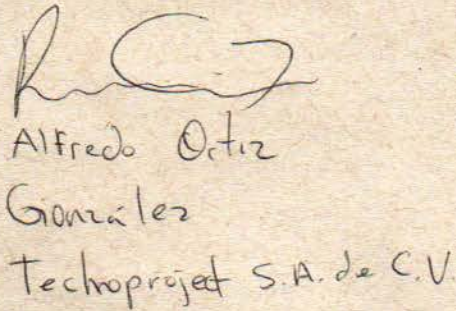 Alfredo Ortiz
González
Technoproject S.A. de C.V.